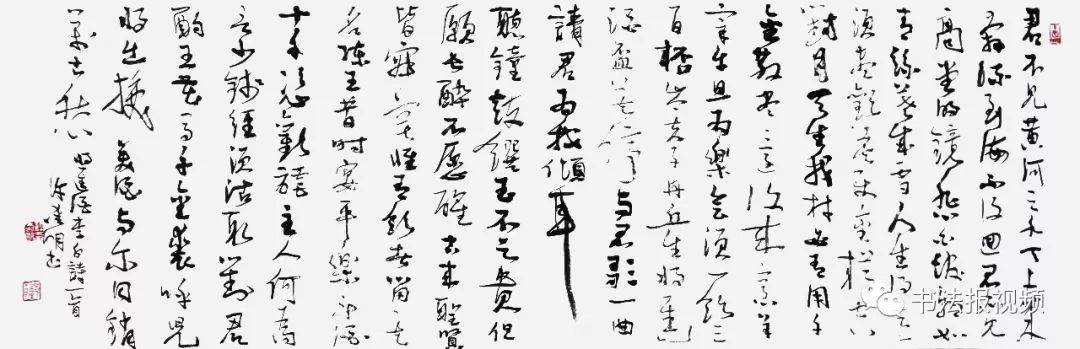 君不見黄河之水天上來
奔流到海不復回君不見
高堂明鏡悲白髮朝如
青絲暮成雪人生得意
須盡歡莫使金樽空
對月天生我材必有用千
金散盡還復來烹羊
宰牛且為樂會須一飲三
百杯岑夫子丹丘生將進
酒盃莫停與君歌一曲
請君為我傾耳
聽鐘鼓饌玉不足貴但
願長醉不願醒古來聖賢
皆寂寞惟有飲者留其
名陳王昔時宴平樂斗酒
十千恣歡謔主人何為
言少錢徑須沽取對君
酌五花馬千金裘呼兒
將出換美酒與爾同銷
萬古愁 將進酒李白詩一首
書法报视频